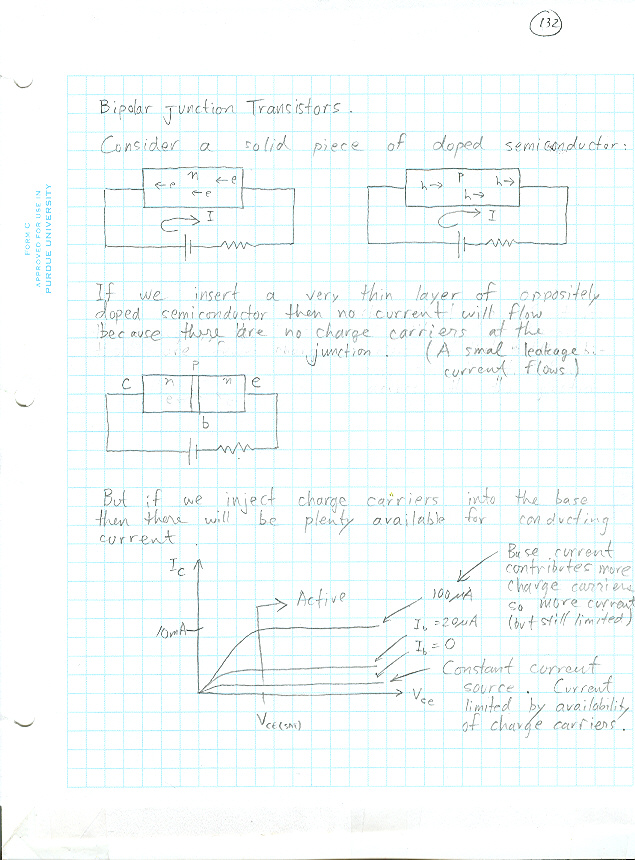 132
FORM C
APPROVED FOR USE IN
PURDUE UNIVERSITY
Bipolar Junction Transistors.
Consider a solid piece of doped semiconductor:
n
←e ←e
←e
I
P
h→ h→
h→
I
If we insert a very thin layer of oppositely
doped semiconductor then no current will flow
because there are no charge carriers at the
junction. (A small leakage
current flows)
P
C n n e
b
But if we inject charge carriers into the base
then there will be plenty available for conducting
current
I_C
Active
10mA
100μA
I_b = 20μA
I_b = 0
Base current
contributes more
charge carriers
so more current
(but still limited)
V_ce
V_CE(SAT)
Constant current
source. Current
limited by availability
of charge carriers.